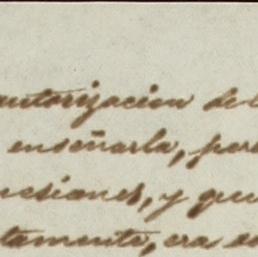 autorizacion de l
enseñarla, per
nesiones, y que
tamente, era en